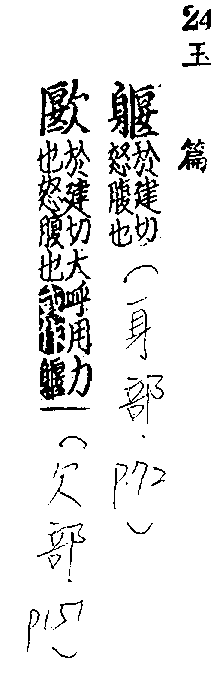 24 玉篇
躽 於建切
怒腹也
(身部. P.72)
於建切大呼用力
也怒腹也或作躽
(欠部. P151)